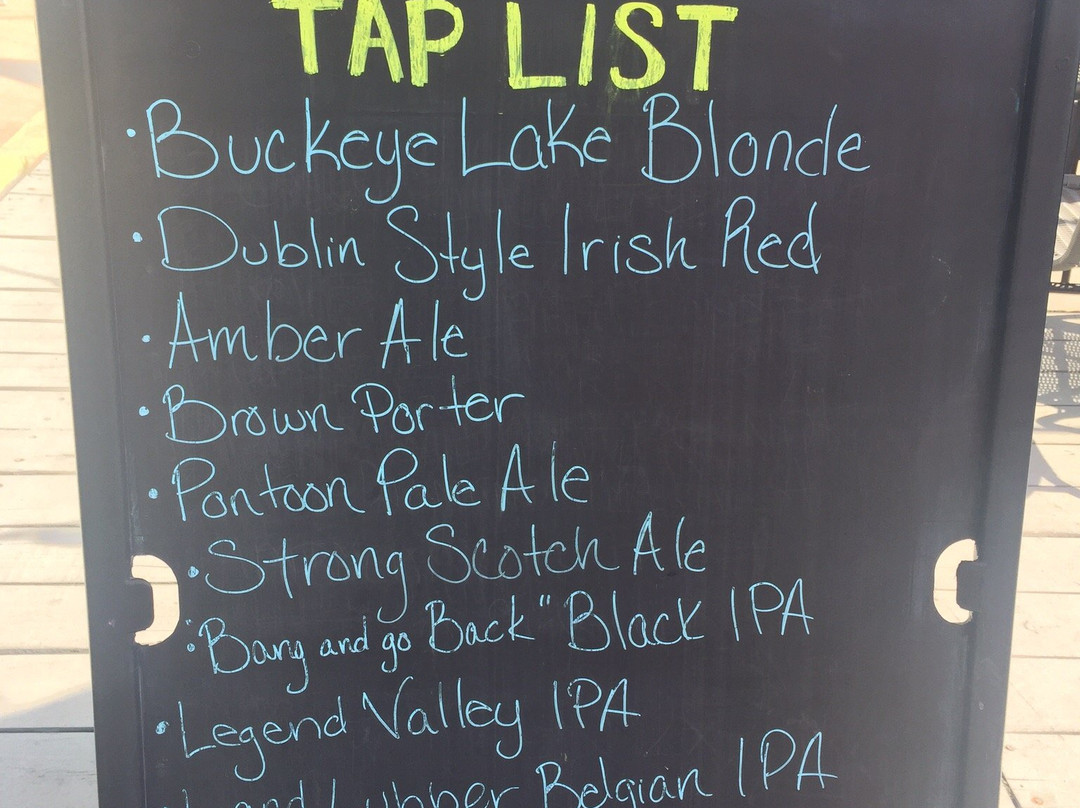 TAP LIST
• Buckeye Lake Blonde
• Dublin Style Irish Red
• Amber Ale
• Brown Porter
• Pontoon Pale Ale
• Strong Scotch Ale
• "Bang and go Back" Black IPA
• Legend Valley IPA
• Land Lubber Belgian IPA